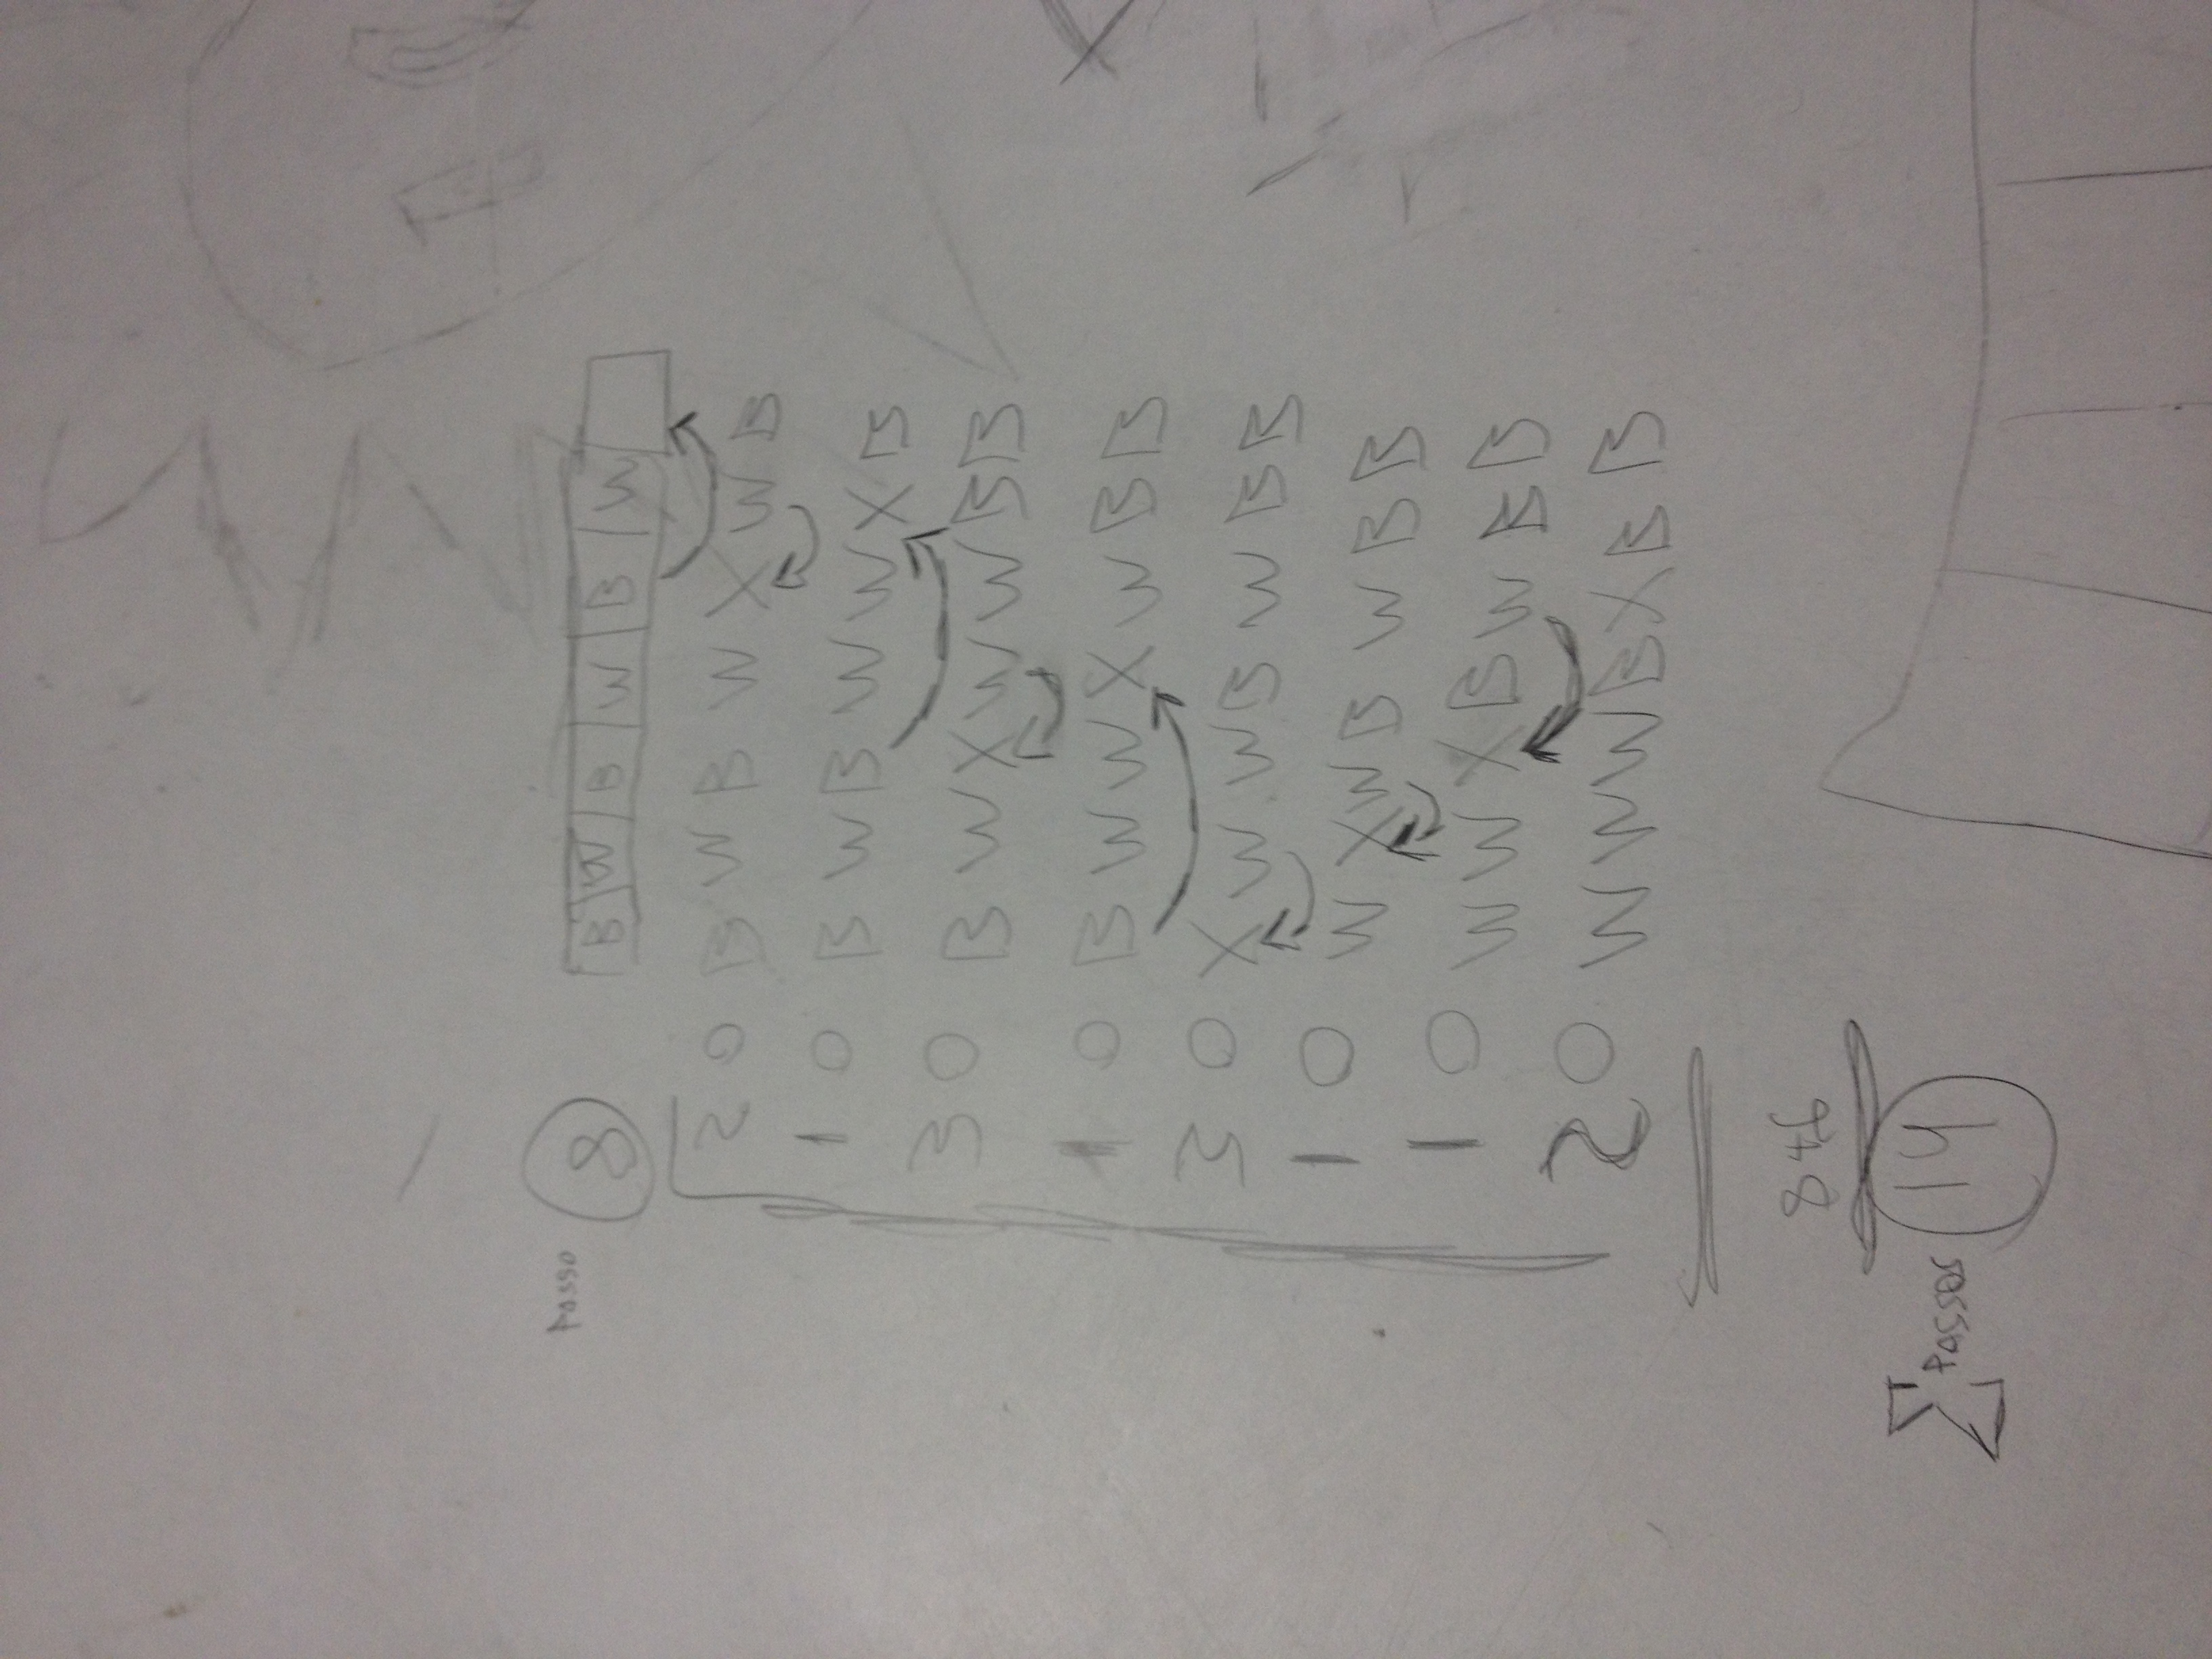 Passo 8 B W B W B W
2 0 B W B W X W B
1 0 B W B W W X B
3 0 B W X W W B B
1 0 B W W X W B B
3 0 X W W B W B B
1 0 W X W B W B B
1 0 W W X B W B B
2 0 W W W B X B B
8+6
Σ Passos 14